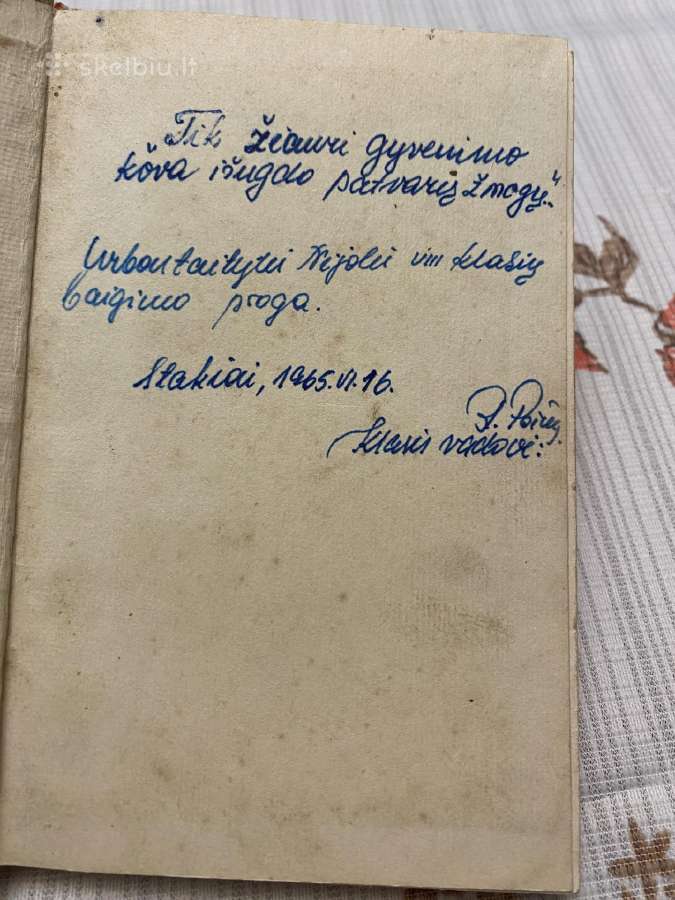 skelbiu.lt
Tik žiauri gyvenimo
kova išugdo patvarių žmogų"
Urbontaitytei Nijolei VIII klasių
baigimo proga.
Stakiai, 1965.VI.16.
Klasės vadovė: